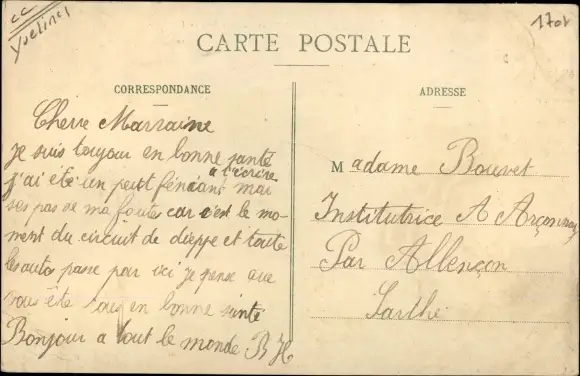 cc
Yvelines
1701
CARTE POSTALE
CORRESPONDANCE
Cherre Marraine
Je suis toujour en bonne santé
a t'ecrire
j'ai été un peut fénéant mai
ses pas de ma faute car c'est le mo-
ment du circuit de dieppe et toute
les auto passe par ici je pense que
vous ête tous en bonne sante
Bonjour a tout le monde B H
ADRESSE
Madame Bouvet
Institutrice A Arçonnay
Par Allençon
Sarthe